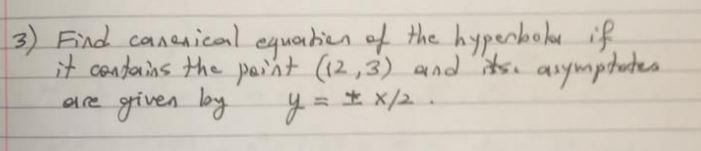 3) Find canonical equation of the hyperbola if
it contains the point (12,3) and its asymptotes
are given by y = ± x/2 .